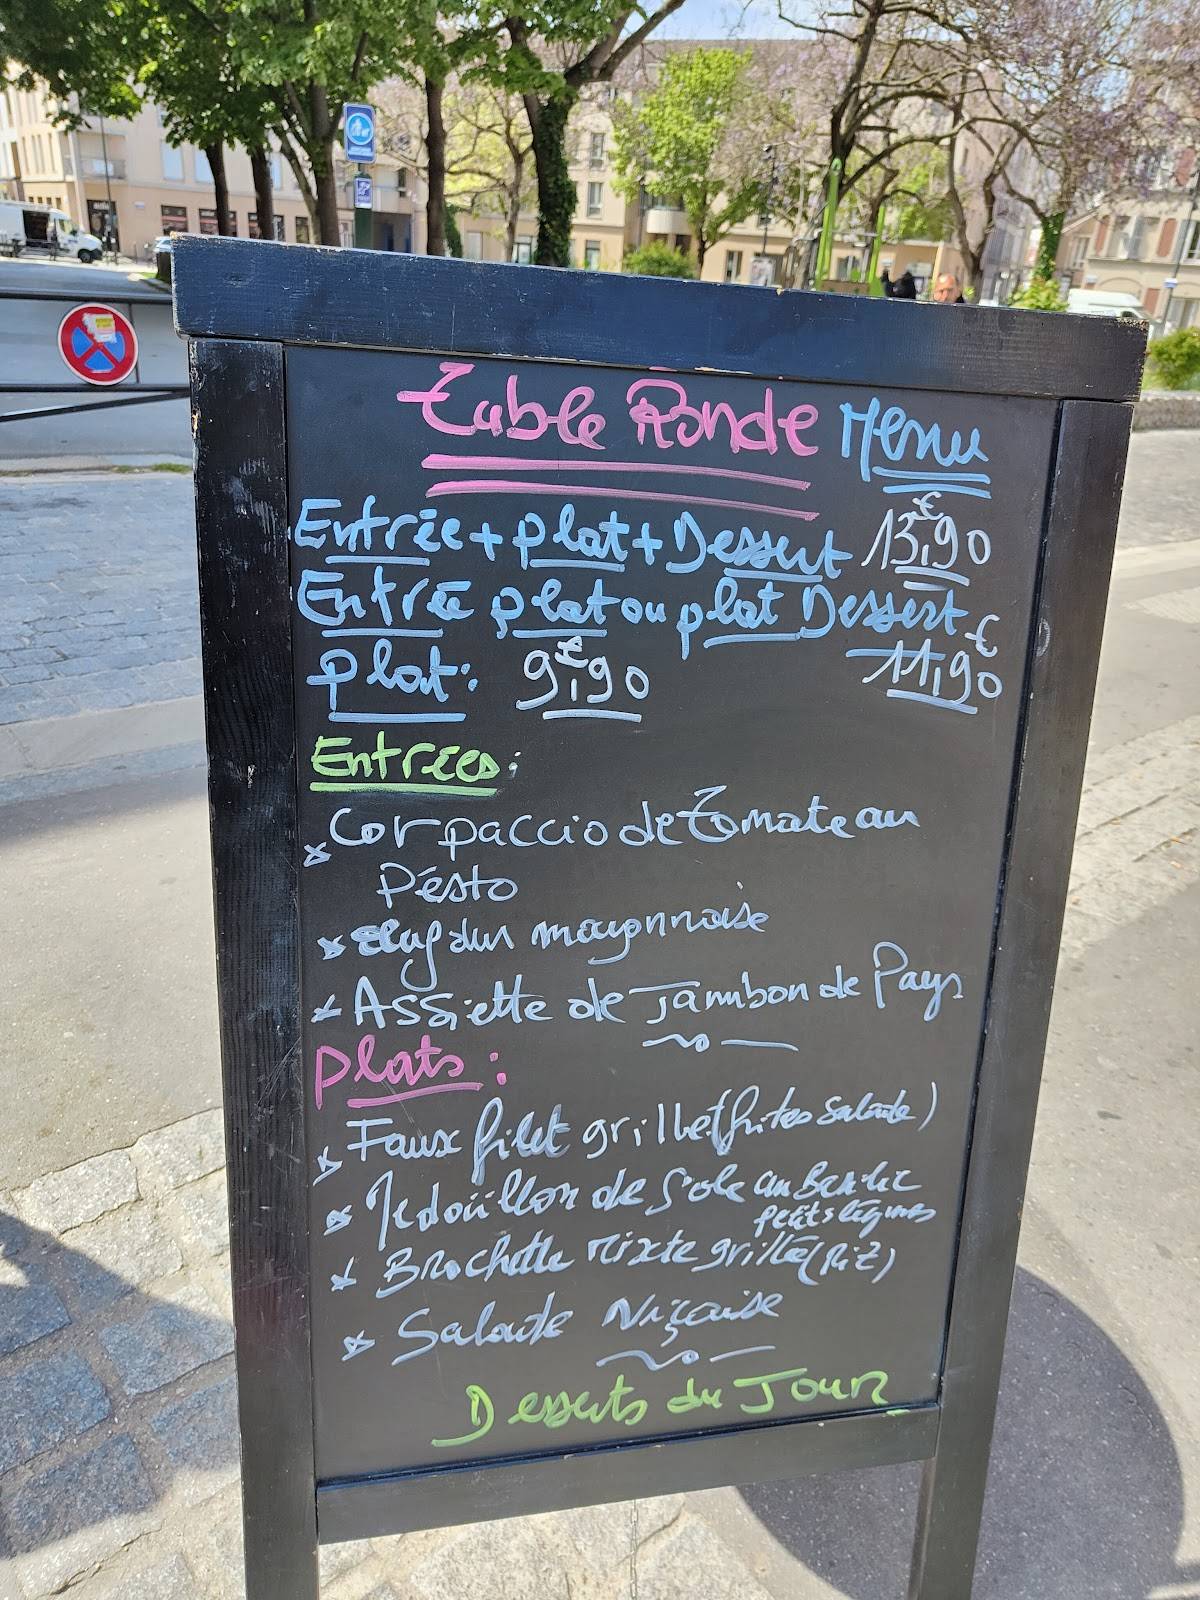 Table Ronde Menu
Entrée + plat + Dessert 13,90 €
Entrée plat ou plat Dessert
plat: 9,90 € 11,90 €
Entrées:
Carpaccio de Tomate au
Pésto
dur mayonnaise
Assiette de Jambon de Pays
Plats:
Faux filet grillé (frites salade)
Médaillon de Sole au Basilic
petits légumes
Brochette Mixte grillée (Riz)
Salade Niçaise
Desserts du Jour